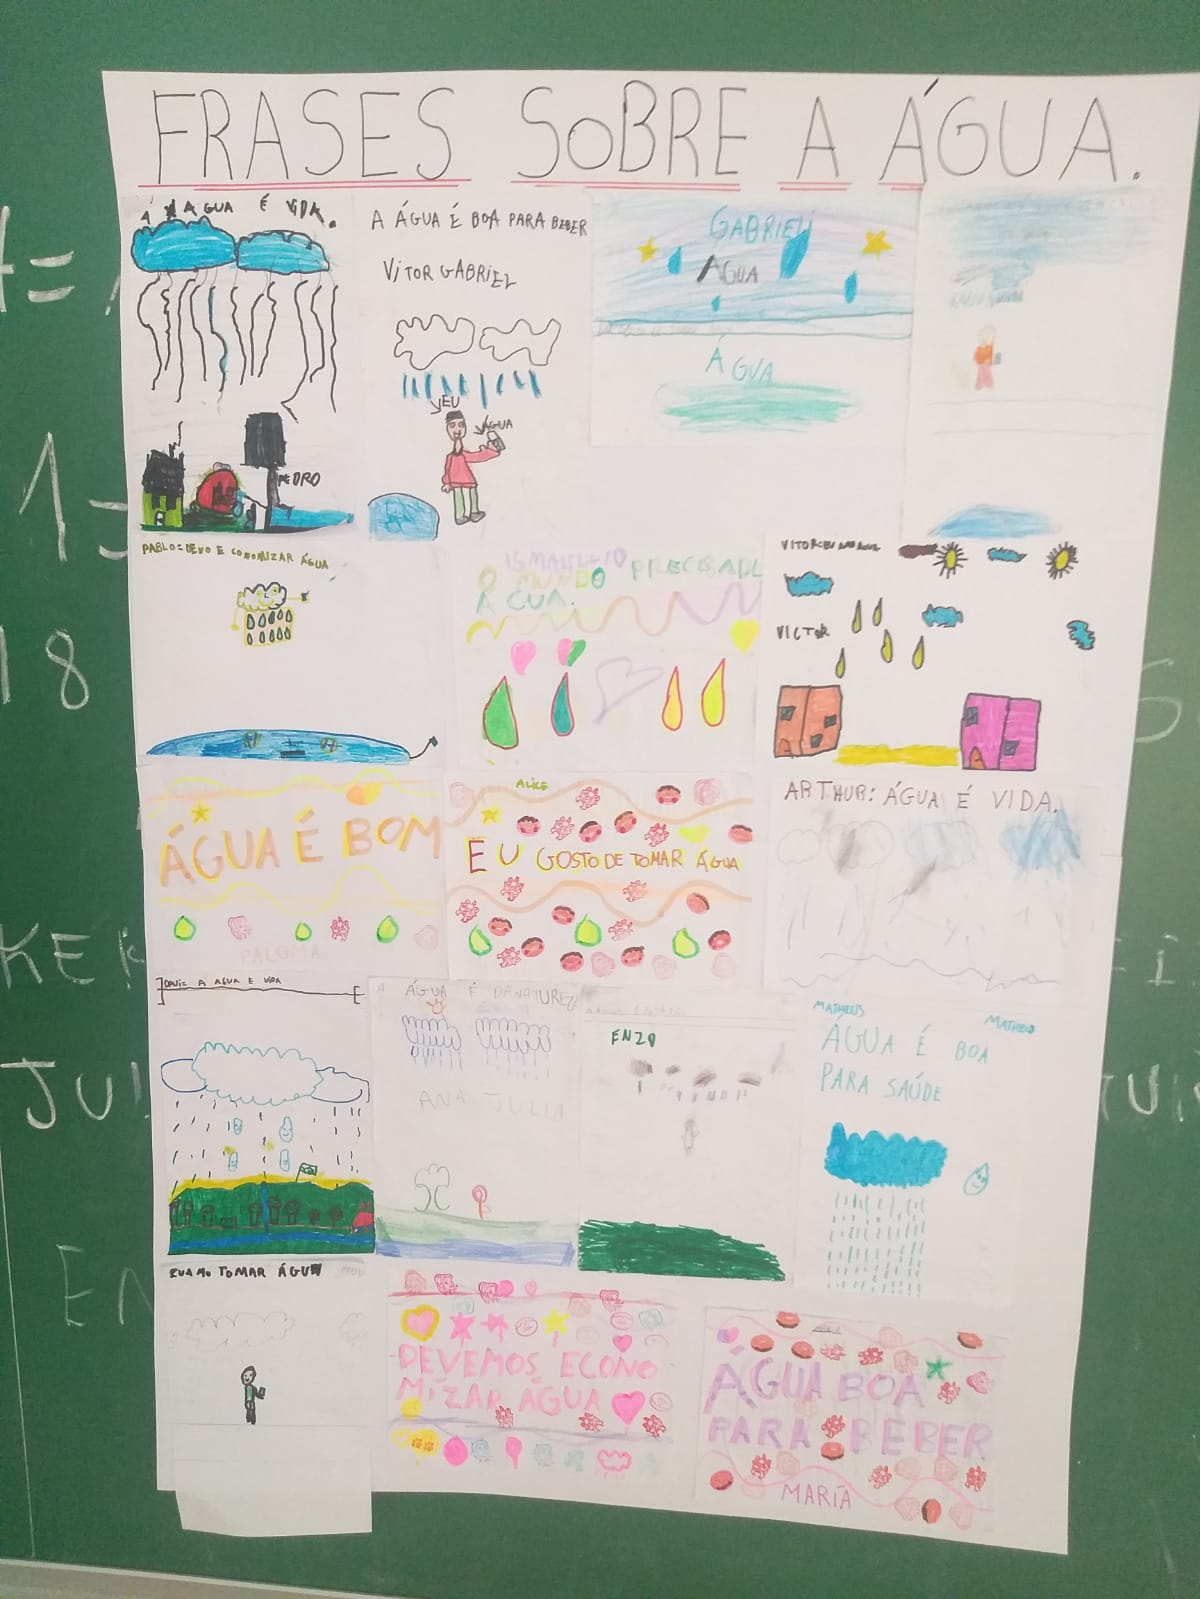 FRASES SOBRE A ÁGUA.
A AGUA É VIDA.
PEDRO
A ÁGUA É BOA PARA BEBER
VITOR GABRIEL
EU
AGUA
GABRIEL
AGUA
ÁGUA
PABLO= DEVO E CONOMIZAR ÁGUA
O MUNDO PRECISA DE
AGUA.
VICTOR
ÁGUA É BOM
PALOMA
ALICE
EU GOSTO DE TOMAR ÁGUA
ARTHUR: ÁGUA É VIDA.
DAVI= A AGUA E VIDA
A ÁGUA É DA NATUREZA
ANA JULIA
ENZO
MATHEUS
MATHEUS
ÁGUA É BOA
PARA SAÚDE
TOMAR ÁGUA
DEVEMOS ECONO
MIZAR ÁGUA
ÁGUA BOA
PARA BEBER
MARIA
18